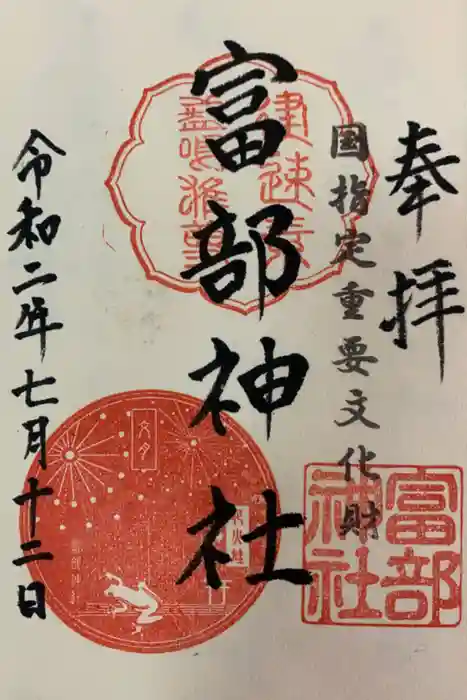 奉拝
国指定重要文化財
富部神社
令和二年七月十二日
富部
神社
文月